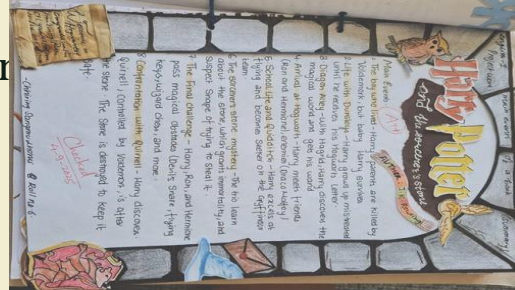 Harry Potter
and the sorcerer's stone
Main Events
1. The boy who lived - Harry's parents are killed by
Voldemort, but baby Harry survives
2. Life with Dursleys - Harry grows up mistreated
until he receives his Hogwarts Letter
3. Diagon Alley - with Hagrid, Harry discovers the
magical world and gets his wand
4. Arrival at Hogwarts - Harry meets friends
(Ron and Hermione), enemies (Draco Malfoy)
5. School life and Quidditch - Harry excels at
flying and becomes seeker on the Gryffindor
6. The sorcerer's stone mystery - the trio learn
about the stone which grants immortality, and
suspect Snape of trying to steal it.
7. The Final challenge - Harry, Ron, and Hermione
pass magical obstacles (Devil's Snare, flying
keys, wizard chess, and more.
8 Confrontation with Quirrell - Harry discovers
Quirrell, controlled by Voldemort, is after
the stone. The stone is destroyed to keep it
safe.
Checked
Roll no 6